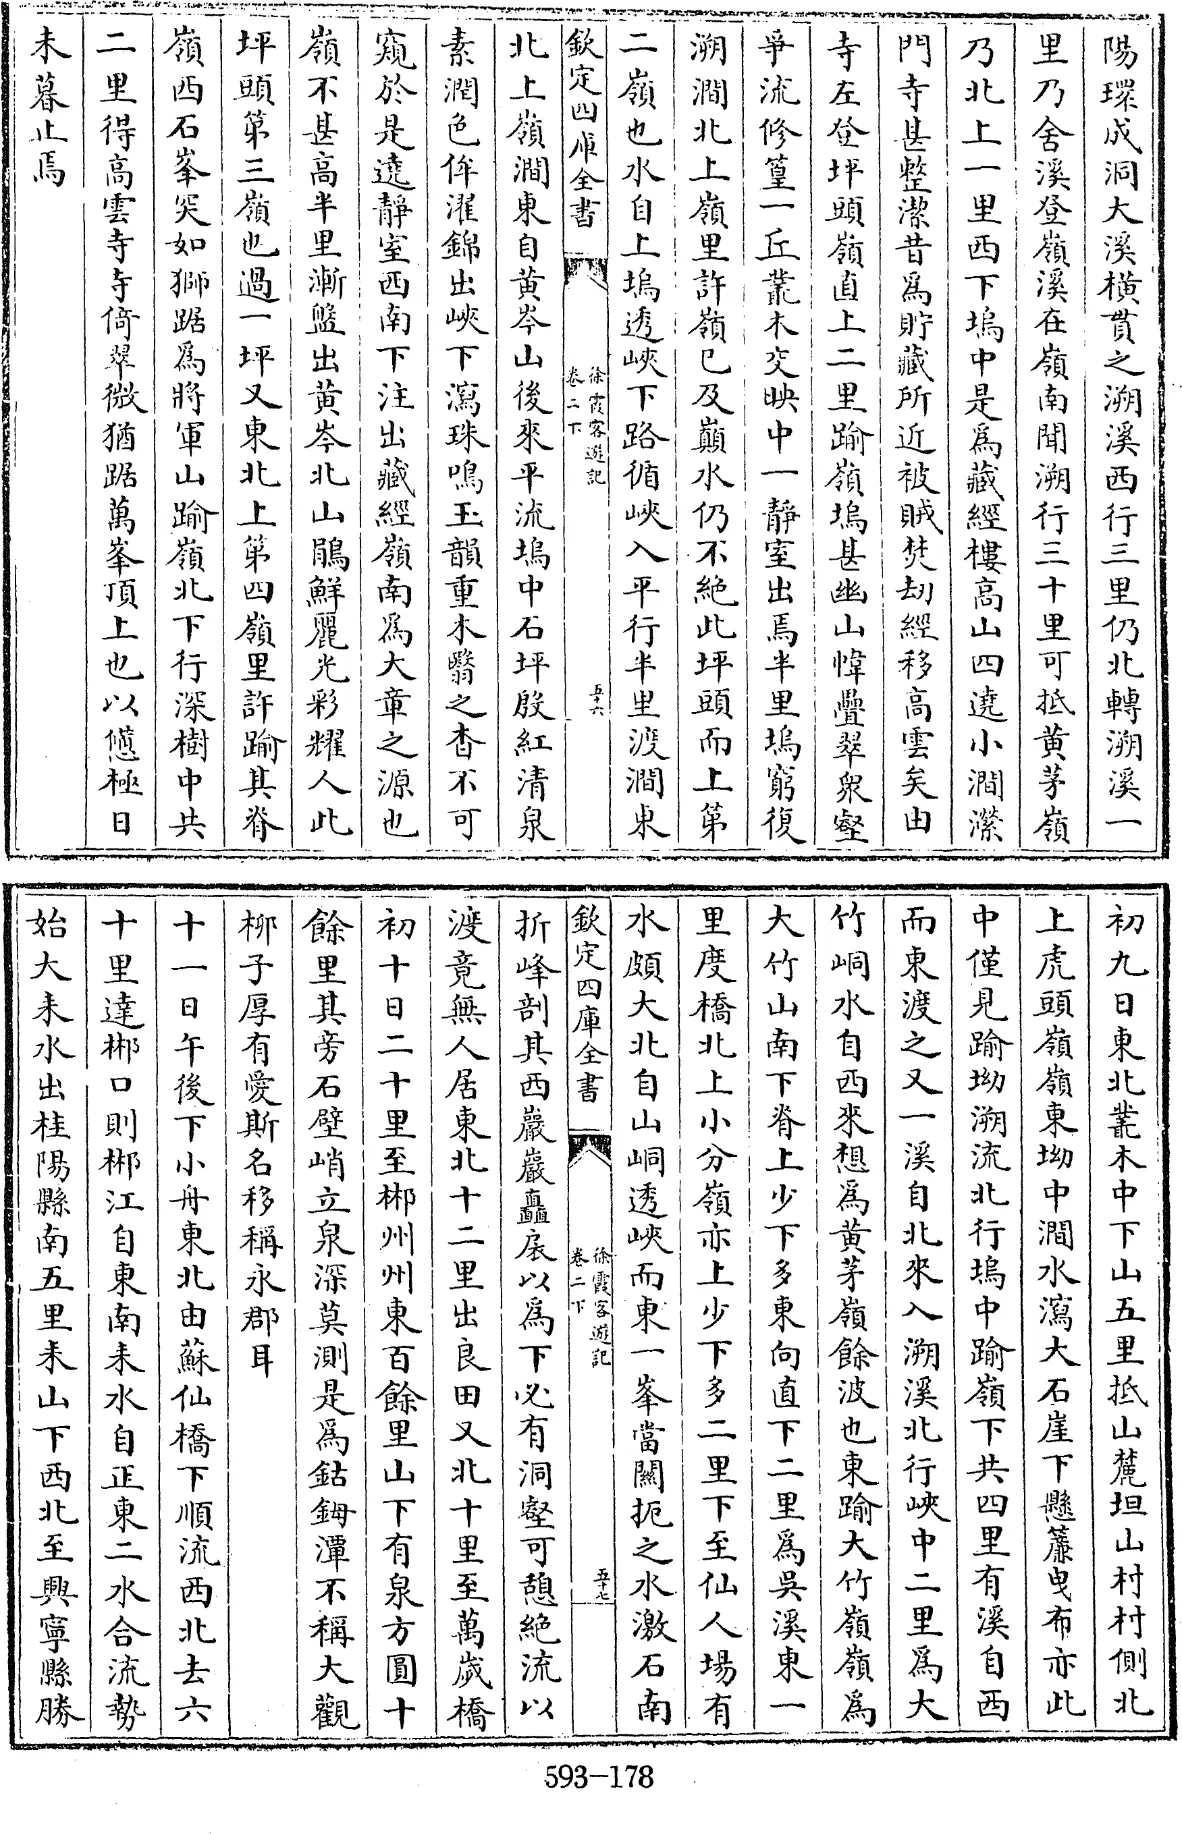 陽環成洞大溪橫貫之溯溪西行三里仍北轉溯溪一
里乃舍溪登嶺溪在嶺南聞溯行三十里可抵黃茅嶺
乃北上一里西下塢中是為藏經樓高山四遶小澗瀠
門寺甚整潔昔為貯藏所近被賊焚劫經移高雲矣由
寺左登坪頭嶺直上二里踰嶺塢甚幽山幃疊翠衆壑
爭流修篁一丘叢木交映中一靜室出焉半里塢窮復
溯澗北上嶺里許嶺已及巔水仍不絶此坪頭而上第
二嶺也水自上塢透峽下路循峽入平行半里渡澗東
欽定四庫全書
徐霞客遊記
卷二下
五十六
北上嶺澗東自黃岑山後來平流塢中石坪殷紅清泉
素潤色侔濯錦出峽下瀉珠鳴玉韻重木翳之杳不可
窺於是遶靜室西南下注出藏經嶺南為大章之源也
嶺不甚高半里漸盤出黃岑北山鵑鮮麗光彩耀人此
坪頭第三嶺也過一坪又東北上第四嶺里許踰其脊
嶺西石峯突如獅踞為將軍山踰嶺北下行深樹中共
二里得高雲寺寺倚翠微猶踞萬峯頂上也以憊極日
未暮止焉
初九日東北叢木中下山五里抵山麓坦山村村側北
上虎頭嶺嶺東坳中澗水瀉大石崖下懸簾曳布亦此
中僅見踰坳溯流北行塢中踰嶺下共四里有溪自西
而東渡之又一溪自北來入溯溪北行峽中二里為大
竹峒水自西來想為黃茅嶺餘波也東踰大竹嶺嶺為
大竹山南下脊上少下多東向直下二里為吳溪東一
里度橋北上小分嶺亦上少下多二里下至仙人場有
水頗大北自山峒透峽而東一峯當關扼之水激石南
欽定四庫全書
徐霞客遊記
卷二下
五十七
折峰剖其西巖巖矗扆以為下必有洞壑可憩絶流以
渡竟無人居東北十二里出良田又北十里至萬歲橋
初十日二十里至郴州州東百餘里山下有泉方圓十
餘里其旁石壁峭立泉深莫測是為鈷鉧潭不稱大觀
柳子厚有愛斯名移稱永郡耳
十一日午後下小舟東北由蘇仙橋下順流西北去六
十里達郴口則郴江自東南耒水自正東二水合流勢
始大耒水出桂陽縣南五里耒山下西北至興寧縣勝
593-178